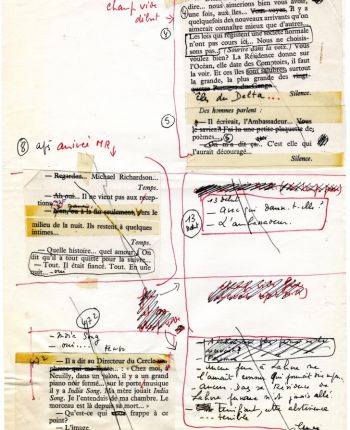 champ vide
début
dire... nous aimerions bien vous avoir,
une fois, aux îles... Vous voyez, il y a
quelquefois des nouveaux arrivants qu'on
aimerait connaître mieux que d'autres...
④
Les lois qui régissent une société normale
n'ont pas cours ici... Nous ne choisis-
sons pas... (Sourire dans la voix.) Vous
voulez bien? La Résidence donne sur
l'Océan, elle date des Comptoirs, il faut
la voir. Et ces îles sont salubres, surtout
la grande, la plus grande des
Île du Delta...
Silence.
Des hommes parlent :
⑤
— Il écrivait, l'Ambassadeur... Vous
le saviez? J'ai lu une petite plaquette de
poèmes...
— On m'a dit ça... C'est elle qui
l'aurait découragé...
Silence.
⑧ arrivée MR
— Regardez... Michael Richardson...
Temps.
— Ah oui... Il ne vient pas aux récep-
tions...
— Non, ou à la fin seulement, vers le
milieu de la nuit. Ils restent à quelques
intimes...
Temps.
— Quelle histoire... quel amour... On
dit qu'il a tout quitté pour la suivre...
— Tout. Il était fiancé. Tout. En une
nuit... oui
13
13 début
— Avec qui danse-t-elle?
— L'ambassadeur.
472
— India Song
— oui...
temps
— Il a dit au Directeur du Cercle
: « Chez moi, à
Neuilly, dans un salon, il y a un grand
piano noir fermé... sur le porte-musique
il y a India Song. Ma mère jouait India
Song. Je l'entendais de ma chambre. Le
morceau est là depuis sa mort... »
— Qu'est-ce qui frappe à ce
point?
— L'image.
— terrifiant, cette abstinence
... terrible
Temps